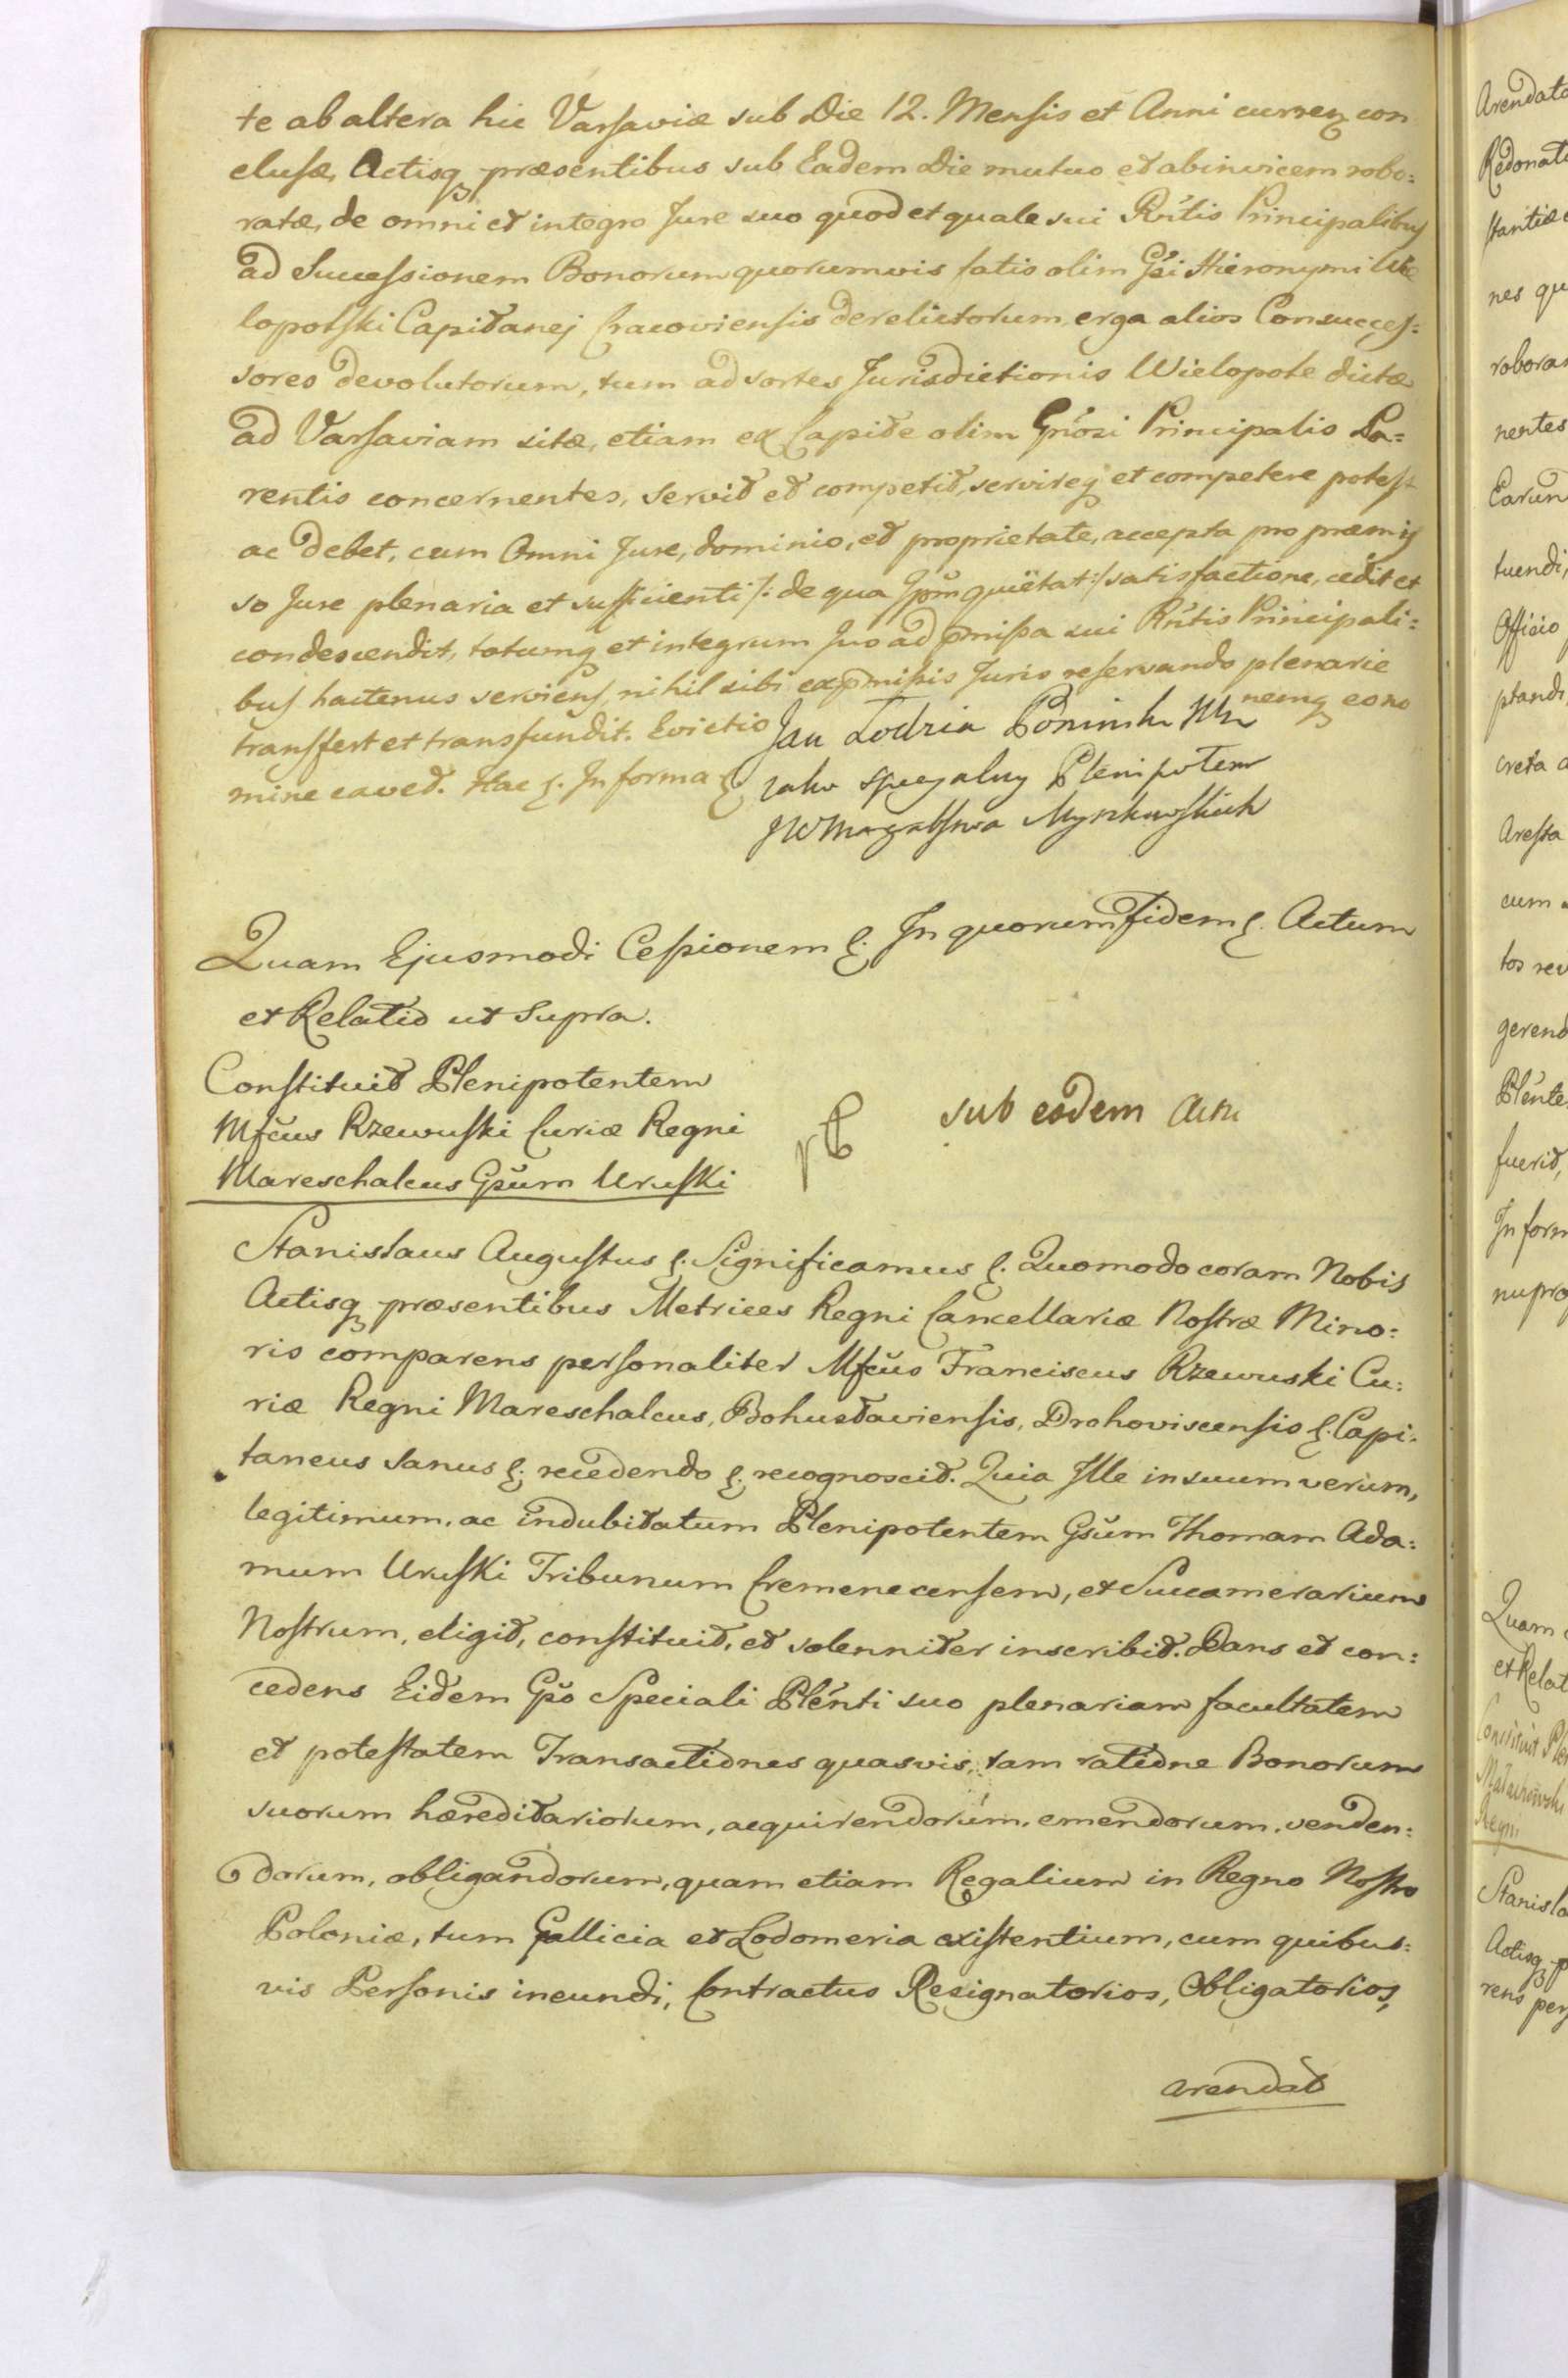 te ab altera hic Varsaviæ sub Die 12. Mensis et Anni curren con
clusæ, Actisq præsentibus sub Eadem Die mutuo et abinvicem robo:
ratæ, de omni et integro Jure suo quod et quale sui Rntis Principalibus
ad Successionem Bonorum quorumvis fatis olim Gsi Hieronymi Wie
lopolski Capitanej Cracoviensis derelictorum erga alios Consucces:
sores devolutorum, tum ad sortes Jurisdictionis Wielopole dictæ
ad Varsaviam sitæ, etiam ex Capite olim Gnosi Principalis Pa:
rentis concernentes, servit et competit, servireq et competere potest
ac debet, cum Omni Jure, dominio, et proprietate, accepta pro præmis
so Jure plenaria et sufficienti /: de qua Ipsm quietat :/ satisfactione, cedit et
condescendit, totumq et integrum Jus ad pmissa sui Rntis Principali:
bus hactenus serviens, nihil sibi ex pmissis Juris reservando plenarie
transfert et transfundit. Evictio nemq eo no
mine cavet. Hac . In forma
Jan Lodzia Poninski
jako specyalny Plenipotent
Myszkowskich
Quam Ejusmodi Cessionem . In quorum fidem . Actum
et Relatio ut Supra.
Constituit Plenipotentem
Mfcus Rzewuski Curiæ Regni
Mareschalcus Gsum Uruski
sub eodem Actu
Stanislaus Augustus . Significamus . Quomodo coram Nobis
Actisq præsentibus Metrices Regni Cancellariæ Nostræ Mino:
ris comparens personaliter Mfcus Franciscus Rzewuski Cu:
riæ Regni Mareschalcus, Bohustaviensis, Drohoviscensis . Capi:
taneus sanus . recedendo . recognoscit. Quia Ille in suum verum,
legitimum, ac indubitatum Plenipotentem Gsum Thomam Ada:
mum Uruski Tribunum Cremenecensem, et Succamerarium
Nostrum, eligit, constituit, et solenniter inscribit. Dans et con:
cedens Eidem Gso Speciali Plenti suo plenariam facultatem
et potestatem Transactiones quasvis, tam ratione Bonorum
suorum hæreditariorum, acquirendorum, emendorum, venden:
dorum, obligandorum, quam etiam Regalium in Regno Nostro
Poloniæ, tum Gallicia et Lodomeria existentium, cum quibus:
vis Personis ineundi, Contractus Resignatorios, Obligatorios,
arendat